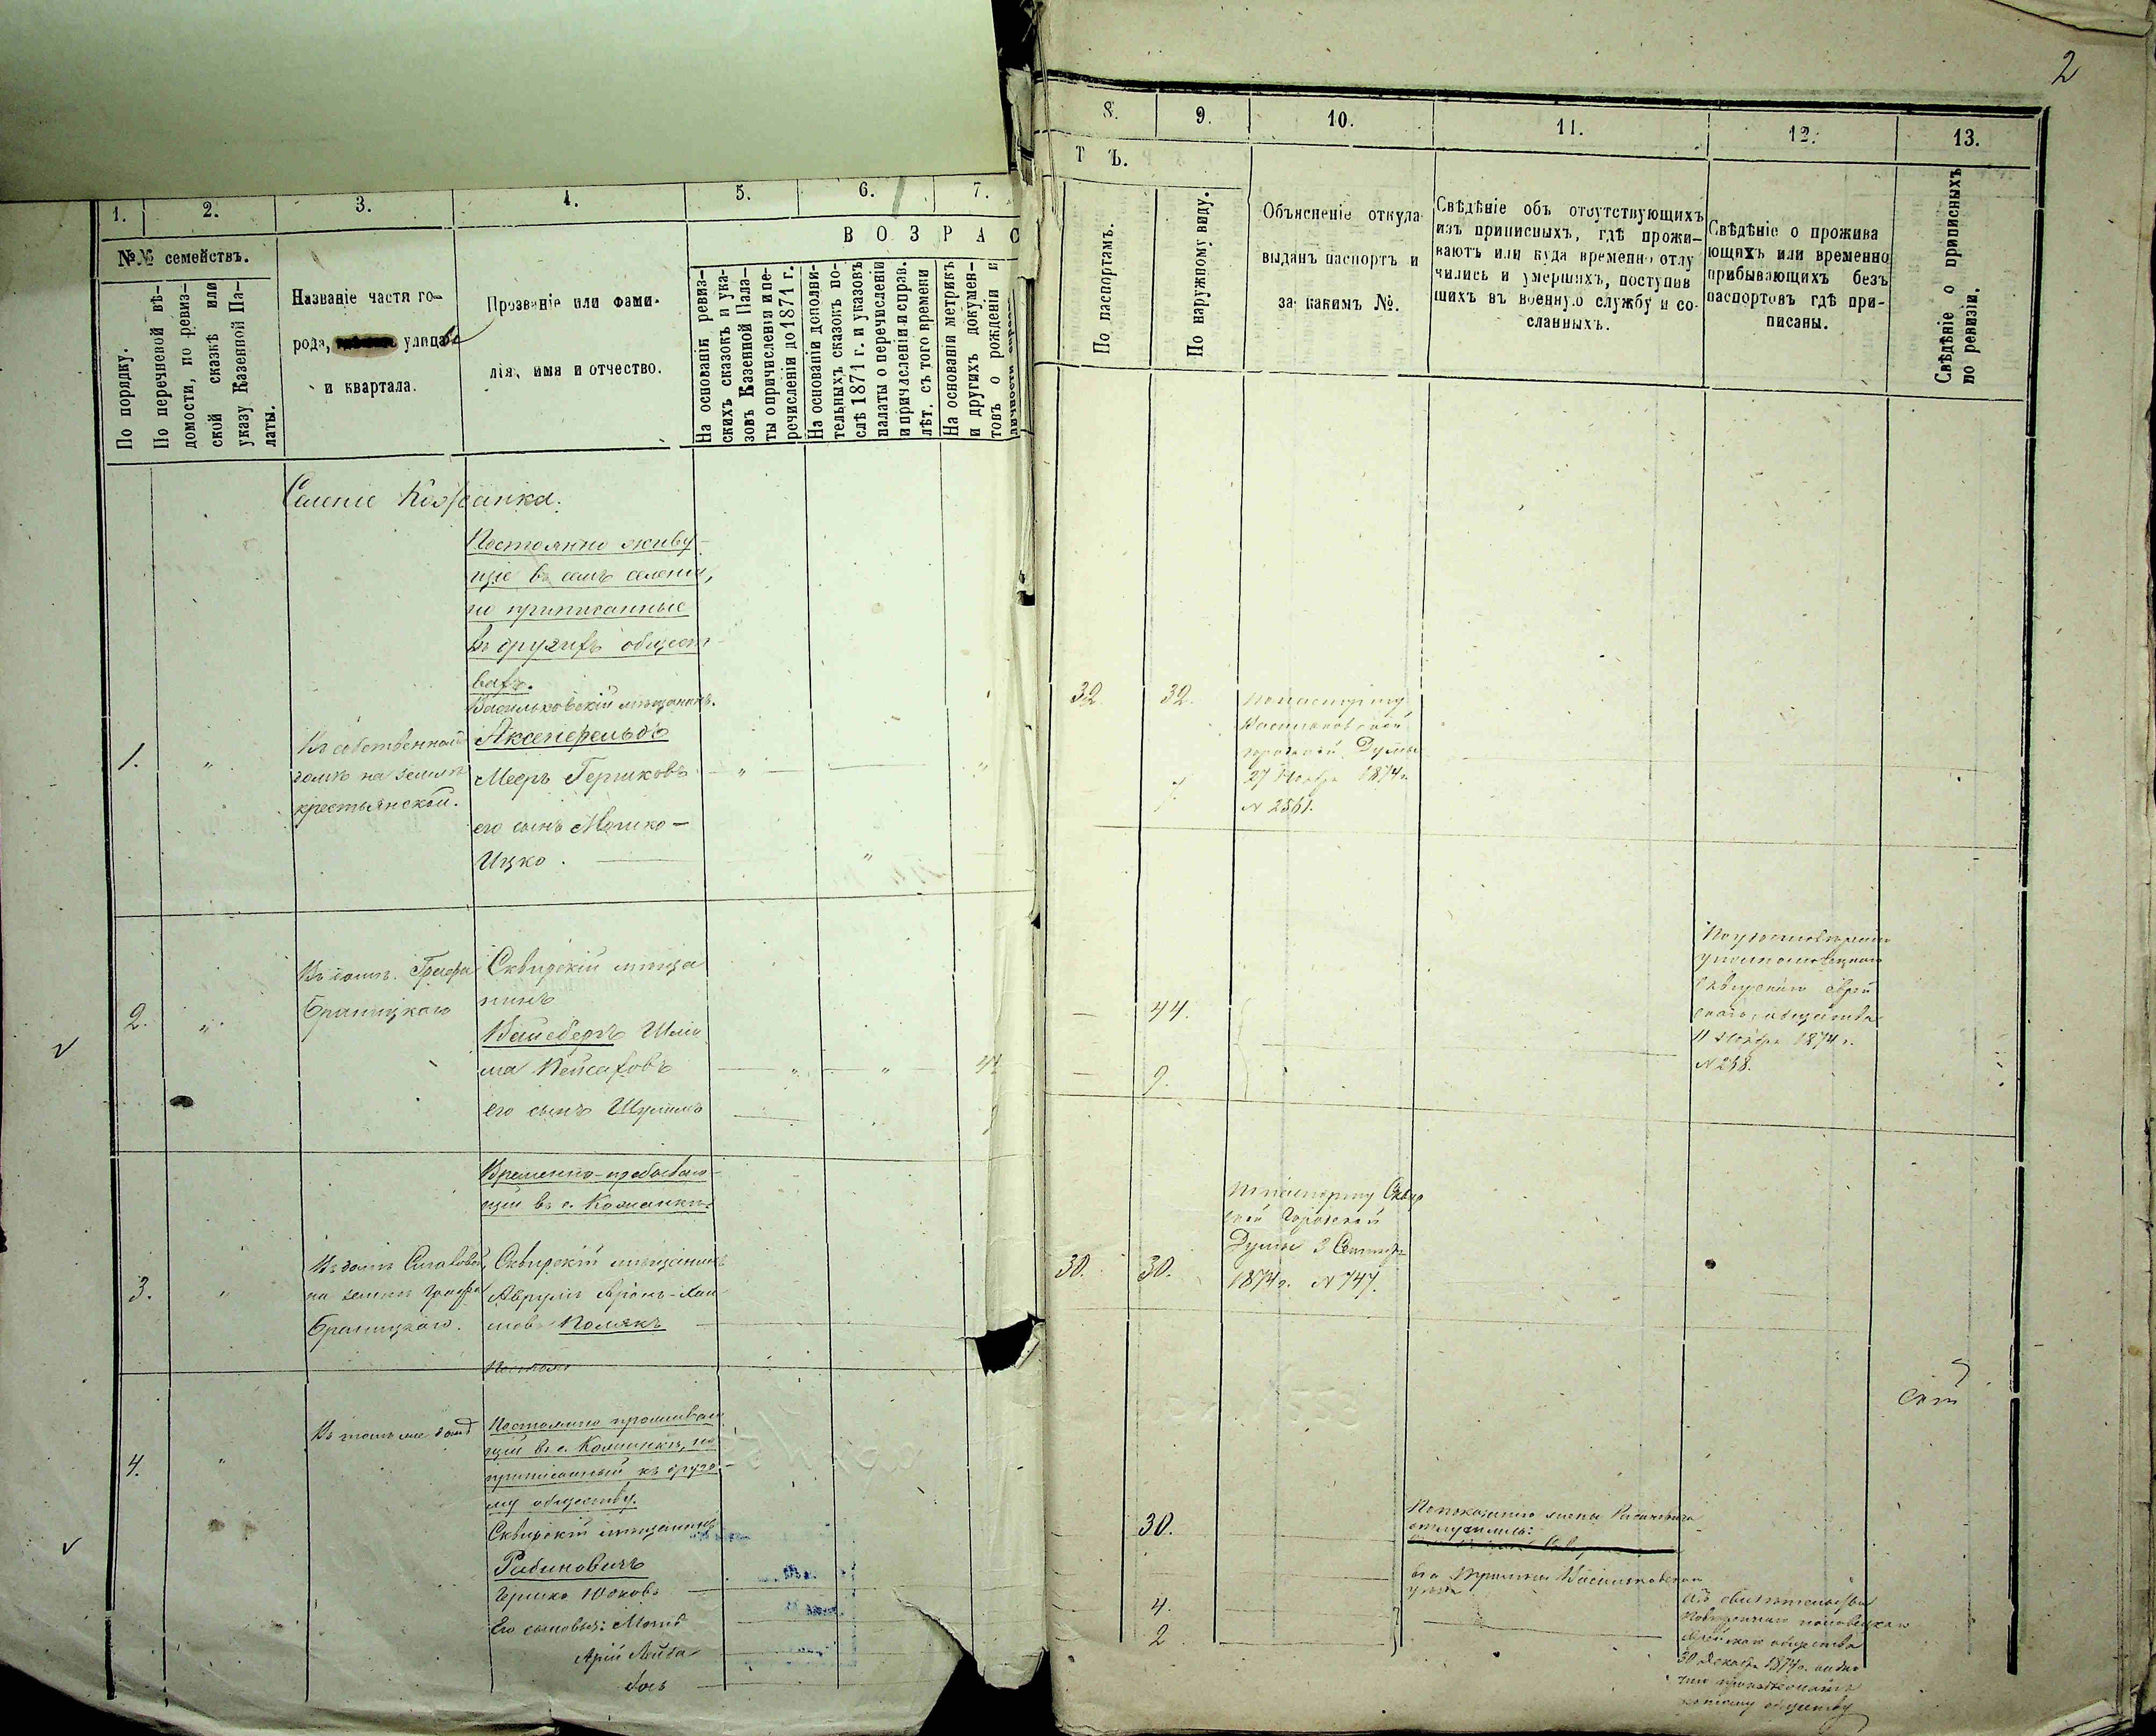 2
1.
2.
3.
4.
5.
6.
7.
8.
9.
10.
11.
12.
13.
№№ семействъ.
По порядку.
По перечневой вѣ-
домости, по ревиз-
ской сказкѣ или
указу Казенной Па-
латы.
Названіе части го-
рода, улицы
и квартала.
Прозваніе или фами-
лія, имя и отчество.
В О З Р А С
Т Ъ.
На основаніи ревиз-
скихъ сказокъ и ука-
зовъ Казенной Пала-
ты о причисленіи и пе-
речисленіи до 1871 г.
На основаніи дополни-
тельныхъ сказокъ по-
слѣ 1871 г. и указовъ
палаты о перечисленіи
и причисленіи и справ.
лѣт. съ того времени
На основаніи метрикъ
и другихъ докумен-
товъ о рожденіи и
По паспортамъ.
По наружному виду.
Объясненіе откуда
выданъ паспортъ и
за какимъ №.
Свѣдѣніе объ отсутствующихъ
изъ приписныхъ, гдѣ прожи-
ваютъ или куда временно отлу
чились и умершихъ, поступив
шихъ въ военную службу и со-
сланныхъ.
Свѣдѣніе о прожива
ющихъ или временно
прибывающихъ безъ
паспортовъ гдѣ при-
писаны.
Свѣдѣніе о приписныхъ
по ревизіи.
Селеніе Кожанка.
Постоянно живу-
щіе въ семъ селеніи,
но приписанные
въ другихъ общест-
вахъ.
Васильковскій мѣщанинъ.
1.
Въ собственномъ
домѣ на землѣ
крестьянской.
Аксенфельдъ
Мееръ Гершковъ
его сынъ Мошко-
Ицко.
32
32.
По паспорту
Васильковской
городской Думы
27 Ноября 1874 г.
N 2561.
2.
Въ домѣ Графа
Браницкаго
Сквирскій мѣща
нинъ
Вайсбергъ Шліо
ма Пейсаховъ
его сынъ Шулимъ
44.
9.
По удостовѣренію
уполномоченнаго
Сквирскаго еврей
скаго общества
11 Ноября 1874 г.
N 258.
Временно-пребываю-
щій въ с. Кожанкѣ.
3.
на землѣ Графа
Браницкаго.
Сквирскій мѣщанинъ
Аврумъ Аронъ-Хаи
мовъ Полякъ
30.
30.
По паспорту Сквир
ской Городской
Думы 3 Сентября
1874 г. N 747.
4.
Въ томъ же домѣ
Постоянно проживаю
щій въ с. Кожанкѣ, но
приписанный къ друго-
му обществу.
Сквирскій мѣщанинъ
Рабиновичъ
Гершко Юсковъ
Его сыновья:
Арій Лейба
30.
4.
2
По показанію жены Рабиновича
30 Декабря 1874 г.